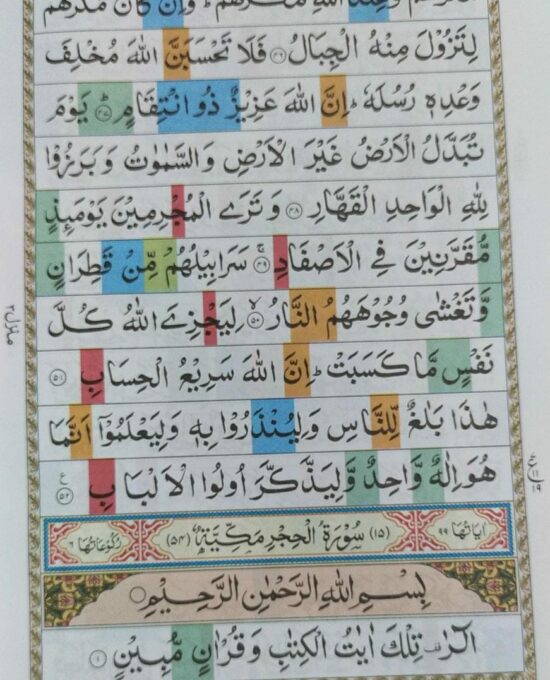 وَعِنْدَ اللّٰهِ مَكْرُهُمْ ؕ وَاِنْ كَانَ مَكْرُهُمْ
لِتَزُوْلَ مِنْهُ الْجِبَالُ ﴿۴۶﴾ فَلَا تَحْسَبَنَّ اللّٰهَ مُخْلِفَ
وَعْدِهٖ رُسُلَهٗ ؕ اِنَّ اللّٰهَ عَزِيْزٌ ذُو انْتِقَامٍ ؕ ﴿۴۷﴾ يَوْمَ
تُبَدَّلُ الْاَرْضُ غَيْرَ الْاَرْضِ وَالسَّمٰوٰتُ وَبَرَزُوْا
لِلّٰهِ الْوَاحِدِ الْقَهَّارِ ﴿۴۸﴾ وَتَرَى الْمُجْرِمِيْنَ يَوْمَئِذٍ
مُّقَرَّنِيْنَ فِى الْاَصْفَادِ ۚ ﴿۴۹﴾ سَرَابِيْلُهُمْ مِّنْ قَطِرَانٍ
وَّتَغْشٰى وُجُوْهَهُمُ النَّارُ ۙ ﴿۵۰﴾ لِيَجْزِىَ اللّٰهُ كُلَّ
نَفْسٍ مَّا كَسَبَتْ ؕ اِنَّ اللّٰهَ سَرِيْعُ الْحِسَابِ ﴿۵۱﴾
هٰذَا بَلٰغٌ لِّلنَّاسِ وَلِيُنْذَرُوْا بِهٖ وَلِيَعْلَمُوْۤا اَنَّمَا
هُوَ اِلٰهٌ وَّاحِدٌ وَّلِيَذَّكَّرَ اُولُوا الْاَلْبَابِ ﴿۵۲﴾ ع
اٰيَاتُهَا ۹۹ (۱۵) سُوْرَةُ الْحِجْرِ مَكِّيَّةٌ (۵۴) رُكُوْعَاتُهَا ۶
بِسْمِ اللّٰهِ الرَّحْمٰنِ الرَّحِيْمِ
الٓرٰ ࣞ تِلْكَ اٰيٰتُ الْكِتٰبِ وَقُرْاٰنٍ مُّبِيْنٍ ﴿۱﴾
منزل ۳
ع ۱۱ ۱۹